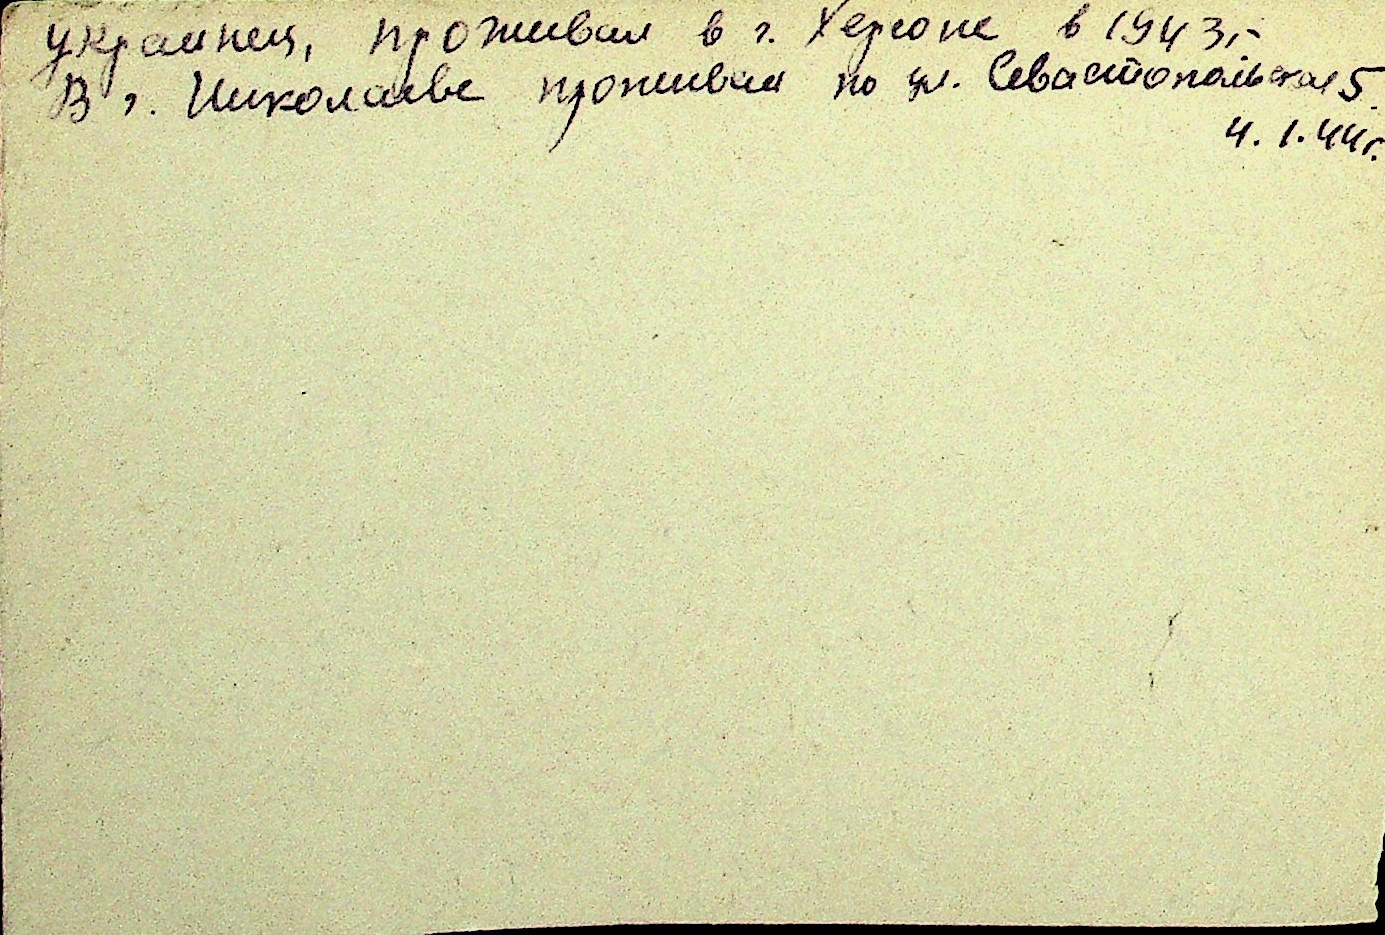 украинец, проживал в г. Херсоне в 1943 г.
В г. Николаеве проживал по ул. Севастопольская 5.
4. 1. 44 г.